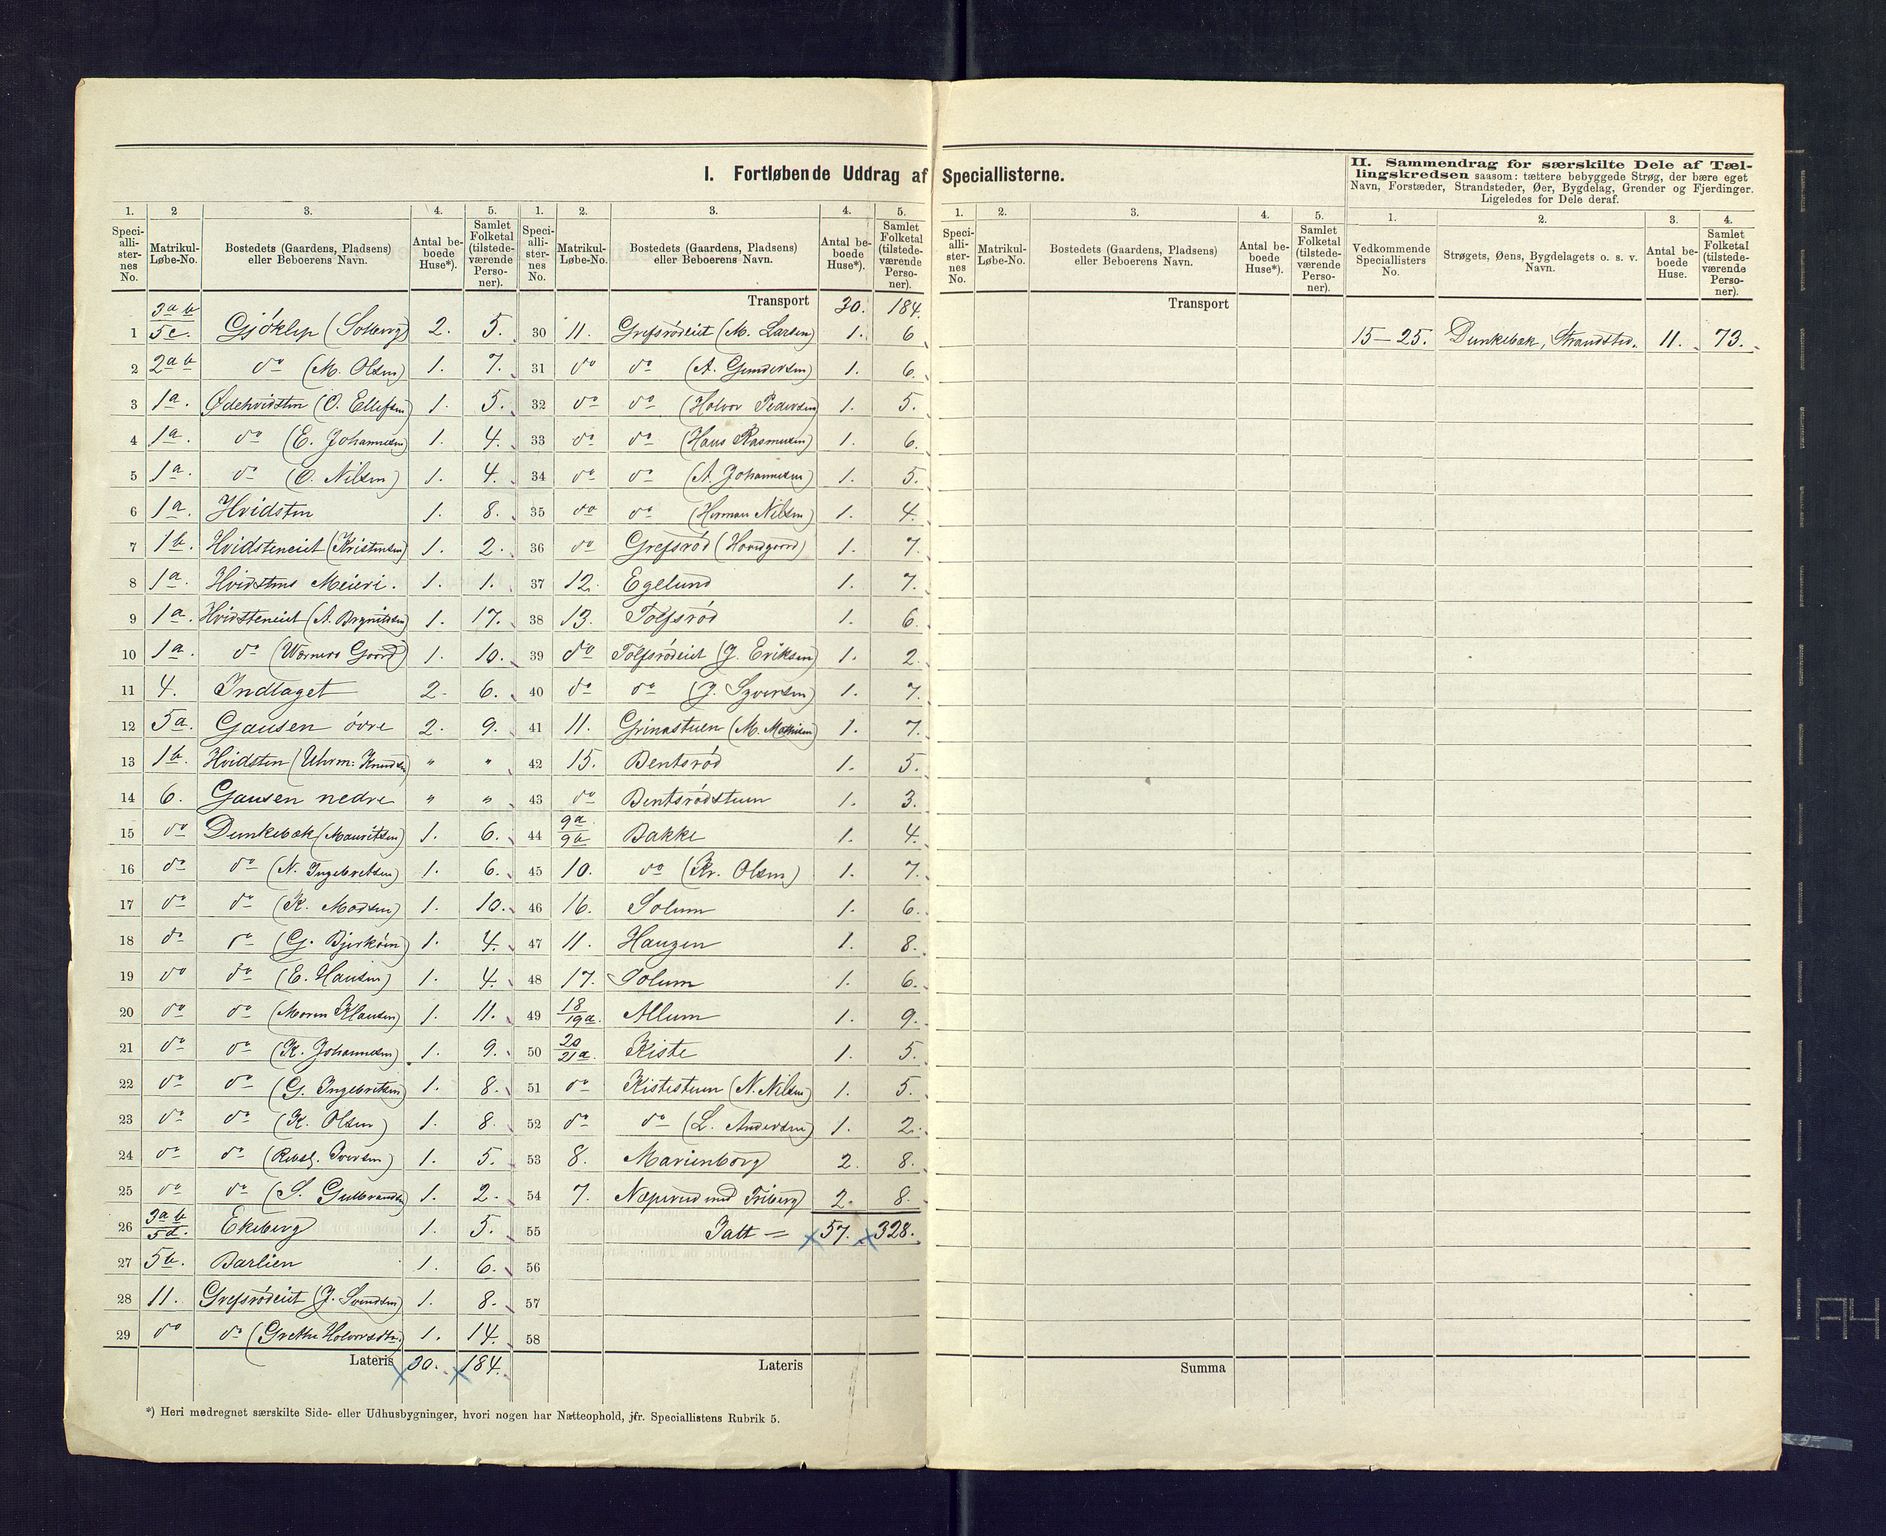 I. Fortløbende Uddrag af Speciallisterne.
1. 2 3. 4. 5.
Speciallisternes No. Matrikul-Løbe-No. Bostedets (Gaardens, Pladsens) eller Beboerens Navn. Antal beboede Huse*). Samlet Folketal (tilstedeværende Personer).
1 3ab/5c Gjøklep (Solberg) 2. 5.
2 2ab do (M. Olsen) 1. 7.
3 1a. Ødehvidsten (O. Ellefsen) 1. 5.
4 1a. do (E. Johannesen) 1. 4.
5 1a do (O. Nilsen) 1. 4.
6 1a. Hvidsten 1. 8.
7 1b. Hvidsteneiet (Kristensen) 1. 2.
8 1a. Hvidstens Meieri. 1. 1.
9 1a. Hvidsteneiet (A. Brynildsen) 1. 17.
10 1a. do (Werners Goord) 1. 10.
11 4. Indlaget 2. 6.
12 5a. Gausen övre 2. 9.
13 1b. Hvidsten (Uhrm: Knudsen) " "
14 6. Gausen nedre " "
15 do Dunkebæk (Mauritsen) 1. 6.
16 do do (N. Ingebretsen) 1. 6.
17 do do (K. Madsen) 1. 10.
18 do do (G. Bjerköen) 1. 4.
19 do do (E. Hansen) 1. 4.
20 do do (Maren Klausen) 1. 11.
21 do do (K. Johannesen) 1. 9.
22 do do (G. Ingebritsen) 1. 8.
23 do do (K. Olsen) 1. 8.
24 do do (Iversen) 1. 5.
25 do do (S. Gulbrandsen) 1. 2.
26 3ab/5d. Ekeberg 1. 5.
27 5b. Barlien 1. 6.
28 11. Grefsrødeiet (J. Svendsen) 1. 8.
29 do do (Grethe Halvorsdtr.) 1. 14.
Lateris 30. 184.
*) Heri medregnet særskilte Side- eller Udhusbygninger, hvori nogen har Natteophold, jfr. Speciallistens Rubrik 5.
1. 2. 3. 4. 5.
Speciallisternes No. Matrikul-Løbe-No. Bostedets (Gaardens, Pladsens) eller Beboerens Navn. Antal beboede Huse*). Samlet Folketal (tilstedeværende Personer).
Transport 30. 184.
30 11. Grefsrødeiet (M. Larsen) 1. 6
31 do do (A. Gundersen) 1. 6.
32 do do (Halvor Pedersen) 1. 5.
33 do do (Hans Rasmusen) 1. 6.
34 do do (A. Johannesen) 1. 5.
35 do do (Herman Nilsen) 1. 4.
36 do Grefsrød (Hovedgaard) 1. 7.
37 12. Egelund 1. 7.
38 13. Tolfsrød 1. 6.
39 do Tolfsrødeiet (J. Eriksen) 1. 2.
40 do do (J. Syversen) 1. 7.
41 11. Grinastuen (M. Mathisen) 1. 7.
42 15. Bentsrød 1. 5.
43 do Bentsrødstuen 1. 3.
44 9a/9b Bakke 1. 4.
45 10. do (Kr. Olsen) 1. 7.
46 16. Solum 1. 6.
47 11. Haugen 1. 8.
48 17. Solum 1. 6.
49 18/19a. Allum 1. 9.
50 20/21a. Kiste 1. 5.
51 do Kistestuen (N. Nilsen) 1. 5.
52 do do (L. Andersen) 1. 2.
53 8. Marienborg 2. 8.
54 7. Næperud med Friberg 2. 8.
55 Ialt = 57. 328.
56
57
58
Lateris
1. 2. 3. 4. 5.
Speciallisternes No. Matrikul-Løbe-No. Bostedets (Gaardens, Pladsens) eller Beboerens Navn. Antal beboede Huse*). Samlet Folketal (tilstedeværende Personer).
Transport
Summa
II. Sammendrag for særskilte Dele af Tæl-
lingskredsen saasom: tættere bebyggede Strøg, der bære eget
Navn, Forstæder, Strandsteder, Øer, Bygdelag, Grender og Fjerdinger.
Ligeledes for Dele deraf.
1. 2. 3. 4.
Vedkommende Speciallisters No. Strøgets, Øens, Bygdelagets o. s. v. Navn. Antal beboede Huse. Samlet Folketal (tilstedeværende Personer).
15—25. Dunkebæk, Strandsted. 11. 73.
A4